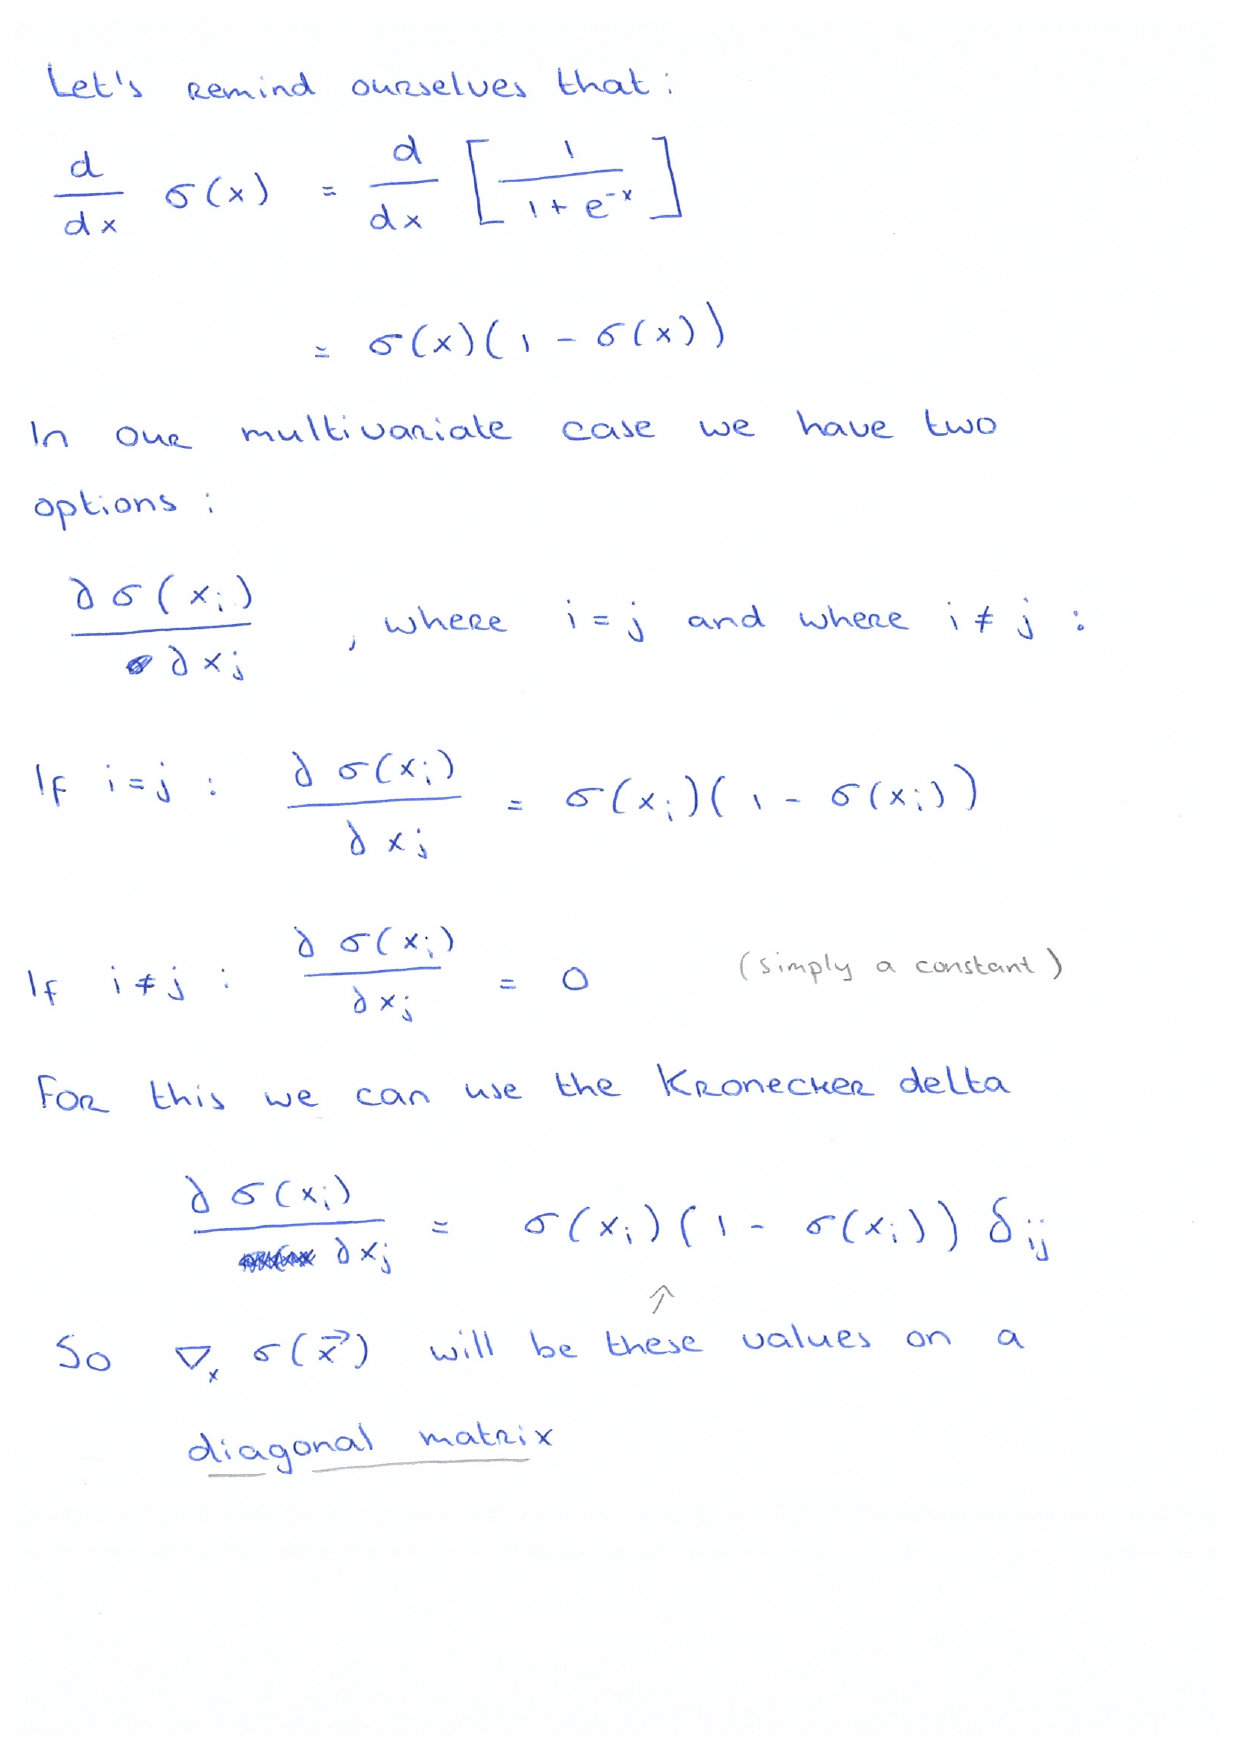 Let's remind ourselves that :
d/dx σ(x) = d/dx [ 1 / (1 + e^-x) ]
= σ(x)(1 - σ(x))
In our multivariate case we have two
options :
∂σ(x_i) / ∂x_j , where i = j and where i ≠ j :
If i = j : ∂σ(x_i) / ∂x_j = σ(x_i)(1 - σ(x_i))
If i ≠ j : ∂σ(x_i) / ∂x_j = 0 (simply a constant)
For this we can use the Kronecker delta
∂σ(x_i) / ∂x_j = σ(x_i)(1 - σ(x_i)) δ_ij
↑
So ∇_x σ(x⃗) will be these values on a
diagonal matrix